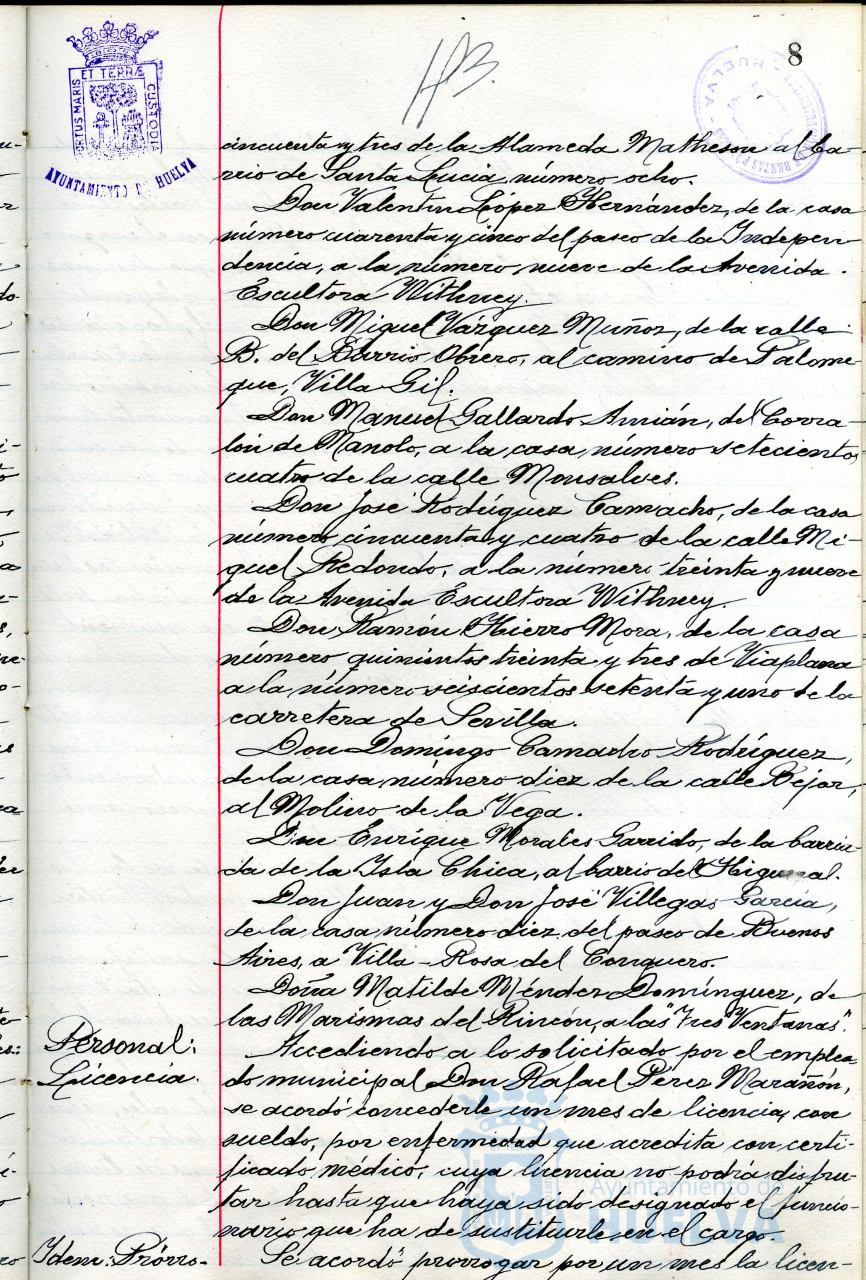 8
PORTUS MARIS ET TERRÆ CUSTODIA
AYUNTAMIENTO DE HUELVA
HUELVA
cincuenta y tres de la Alameda Matheson al ba-
rrio de Santa Lucia, número ocho.
Don Valentín López Hernández, de la casa
número cuarenta y cinco del paseo de la Indepen-
dencia, a la número nueve de la Avenida
Escultora Withney.
Don Miguel Vázquez Muñoz, de la calle
B. del Barrio Obrero, al camino de Palome-
que, Villa Gil.
Don Manuel Gallardo Amián, del Corra-
lón de Manolo, a la casa número setecientos
cuatro de la calle Monsalves.
Don José Rodríguez Camacho, de la casa
número cincuenta y cuatro de la calle Mi-
guel Redondo, a la número treinta y nueve
de la Avenida Escultora Withney.
Don Ramón Hierro Mora, de la casa
número quinientos treinta y tres de Viaplana
a la número seiscientos setenta y uno de la
carretera de Sevilla.
Don Domingo Camacho Rodríguez,
de la casa número diez de la calle Bejar,
al Molino de la Vega.
Don Enrique Morales Garrido, de la barria-
da de la Isla Chica, al barrio del Higueral.
Don Juan y Don José Villegas García,
de la casa número diez del paseo de Buenos
Aires, a Villa Rosa del Conquero.
Doña Matilde Méndez Domínguez, de
las Marismas del Rincón, a las "Tres Ventanas".
Personal:
Licencia.
Accediendo a lo solicitado por el emplea-
do municipal Don Rafael Pérez Marañón,
se acordó concederle un mes de licencia, con
sueldo, por enfermedad que acredita con certi-
ficado médico, cuya licencia no podrá disfru-
tar hasta que haya sido designado el funcio-
nario que ha de sustituirle en el cargo.
Idem: Prórro-
Se acordó prorrogar por un mes la licen-
Ayuntamiento de
HUELVA